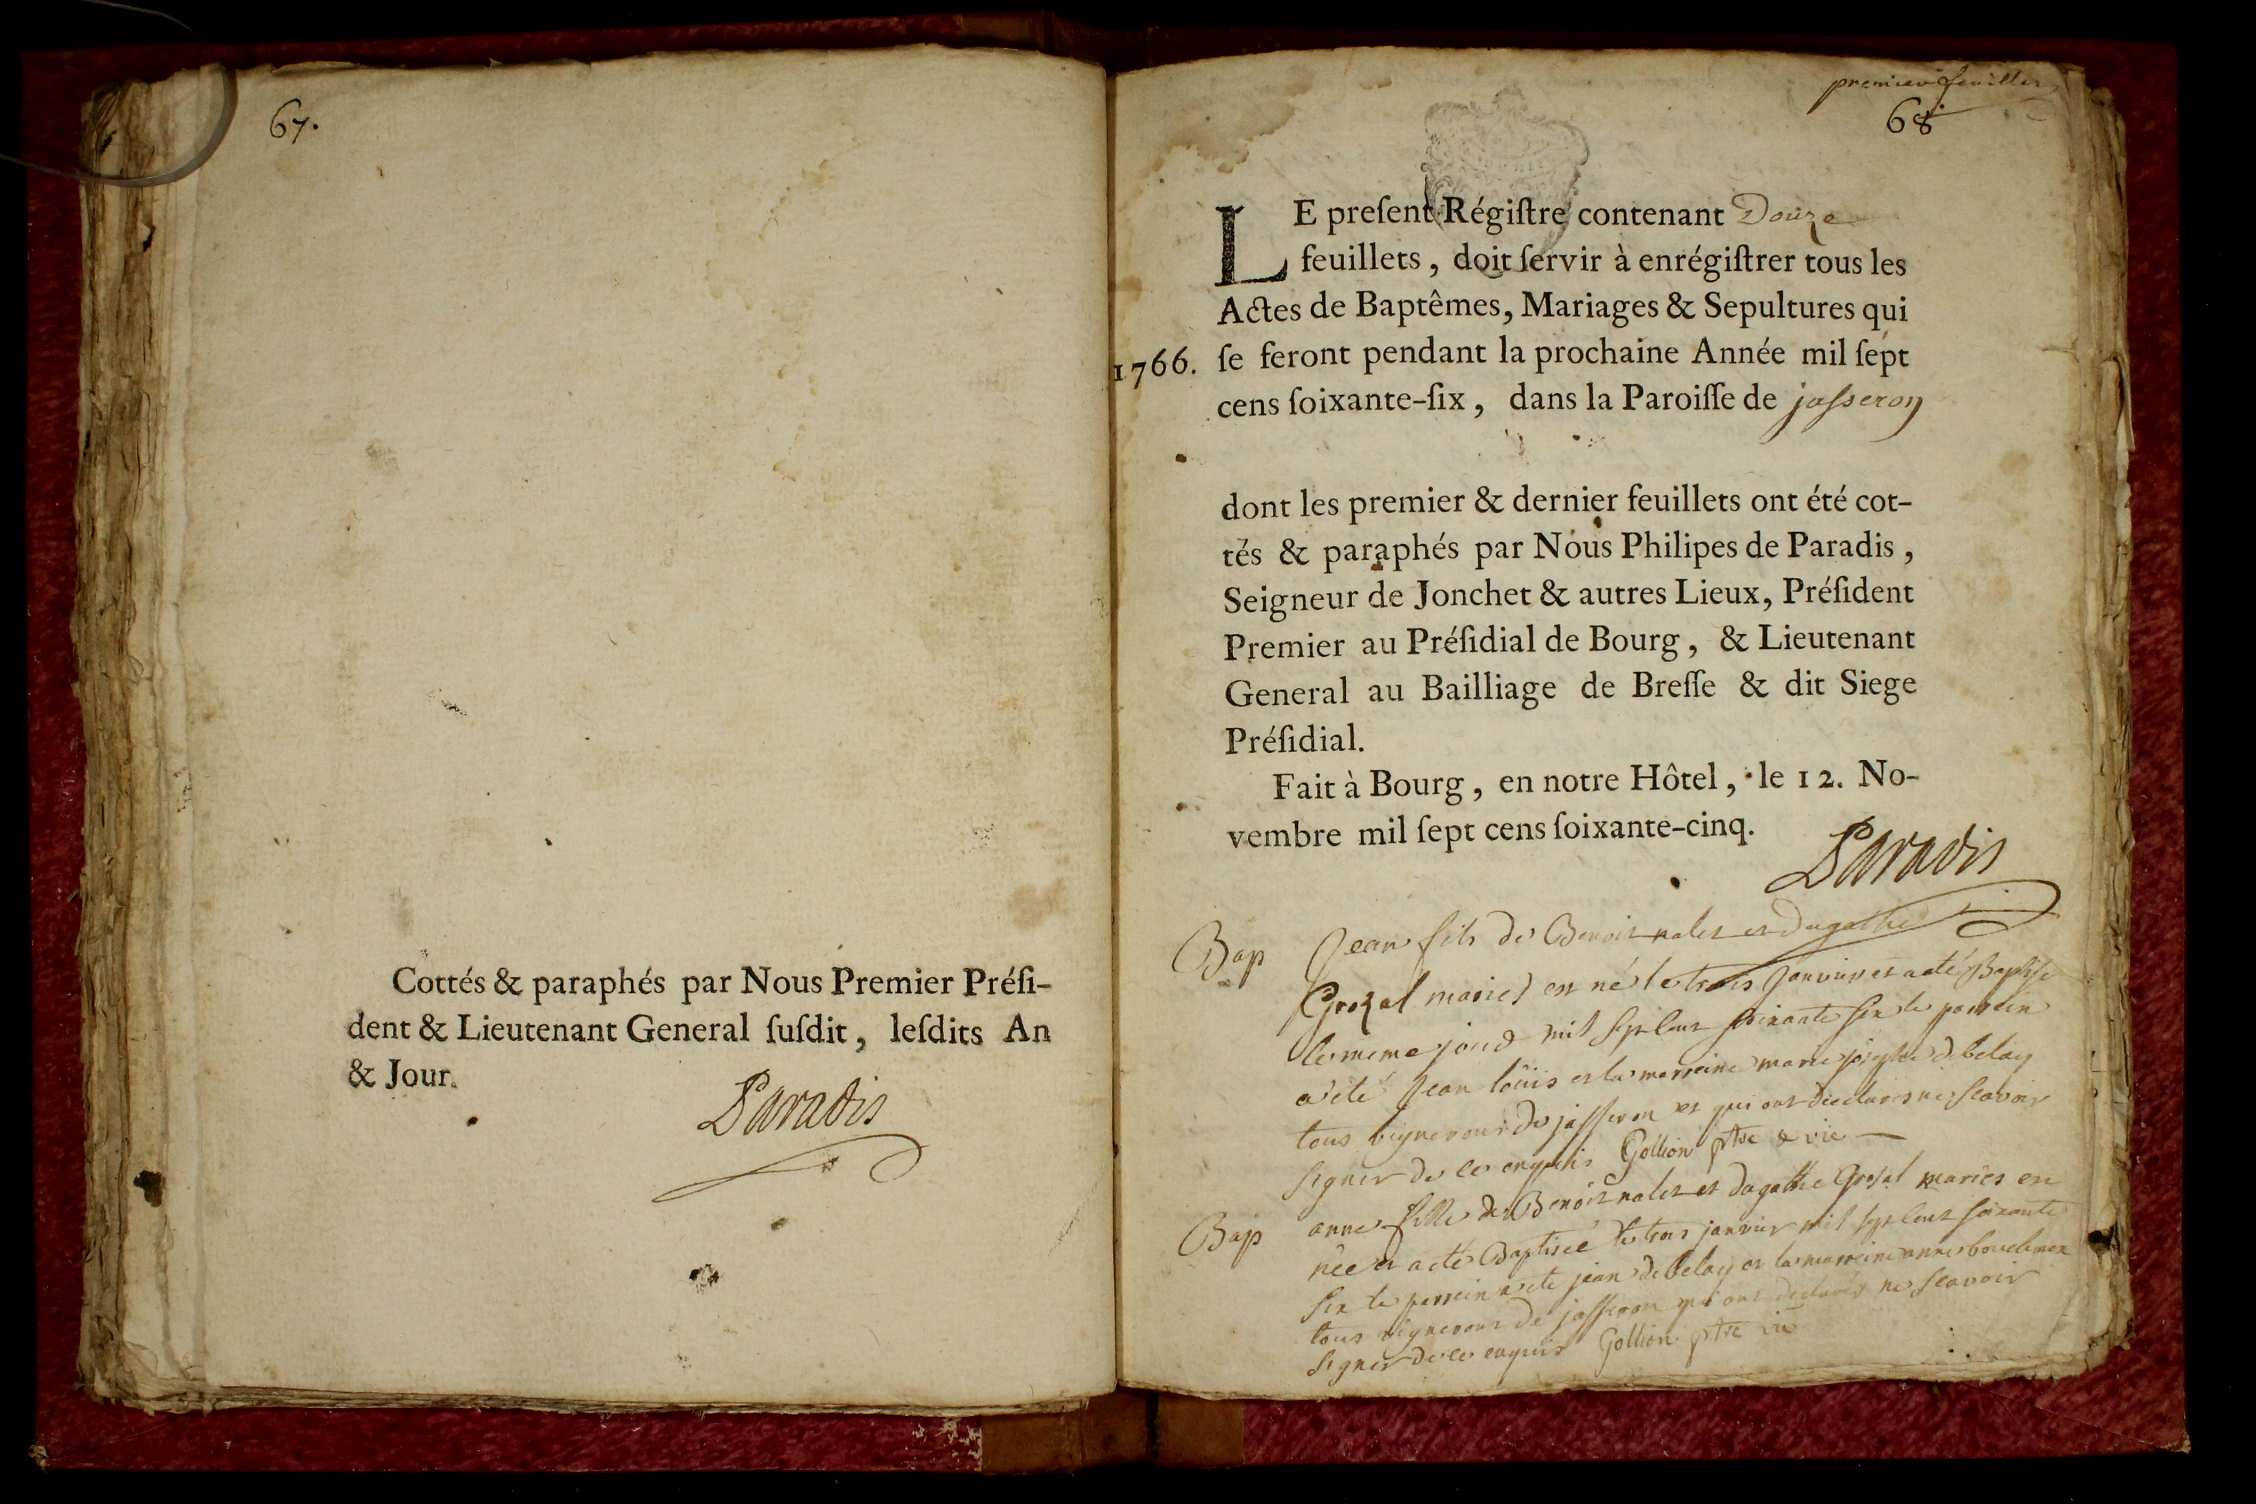 67.
Cottés & paraphés par Nous Premier Préſi-
dent & Lieutenant General ſuſdit, leſdits An
& Jour.
Paradis
premier feuillet
68
LE preſent Régiſtre contenant Douze
feuillets, doit ſervir à enrégiſtrer tous les
Actes de Baptêmes, Mariages & Sepultures qui
1766. ſe feront pendant la prochaine Année mil ſept
cens ſoixante-ſix, dans la Paroiſſe de jasseron
dont les premier & dernier feuillets ont été cot-
tés & paraphés par Nous Philipes de Paradis,
Seigneur de Jonchet & autres Lieux, Préſident
Premier au Préſidial de Bourg, & Lieutenant
General au Bailliage de Breſſe & dit Siege
Préſidial.
Fait à Bourg, en notre Hôtel, le 12. No-
vembre mil ſept cens ſoixante-cinq.
Paradis
Bap Jean fils de Benoit nalet et dagathe
Grozat mariés est né le trois janvier et a eté Baptisé
le meme jour mil sept cent soixante six le parrein
a eté Jean loüis et la marreine marie debelay
tous vignerons de jasseron et qui ont declares ne scavoir
signer de ce enquis Gollion ptre & vic
Bap anne fille de Benoit nalet et dagathe Grosat mariés est
née et a eté Baptisée le trois janvier mil sept cent soixante
six le parrein a eté jean debelay et la marreine anne
tous vignerons de jasseron qui ont declarés ne scavoir
signer de ce enquis Gollion ptre vic